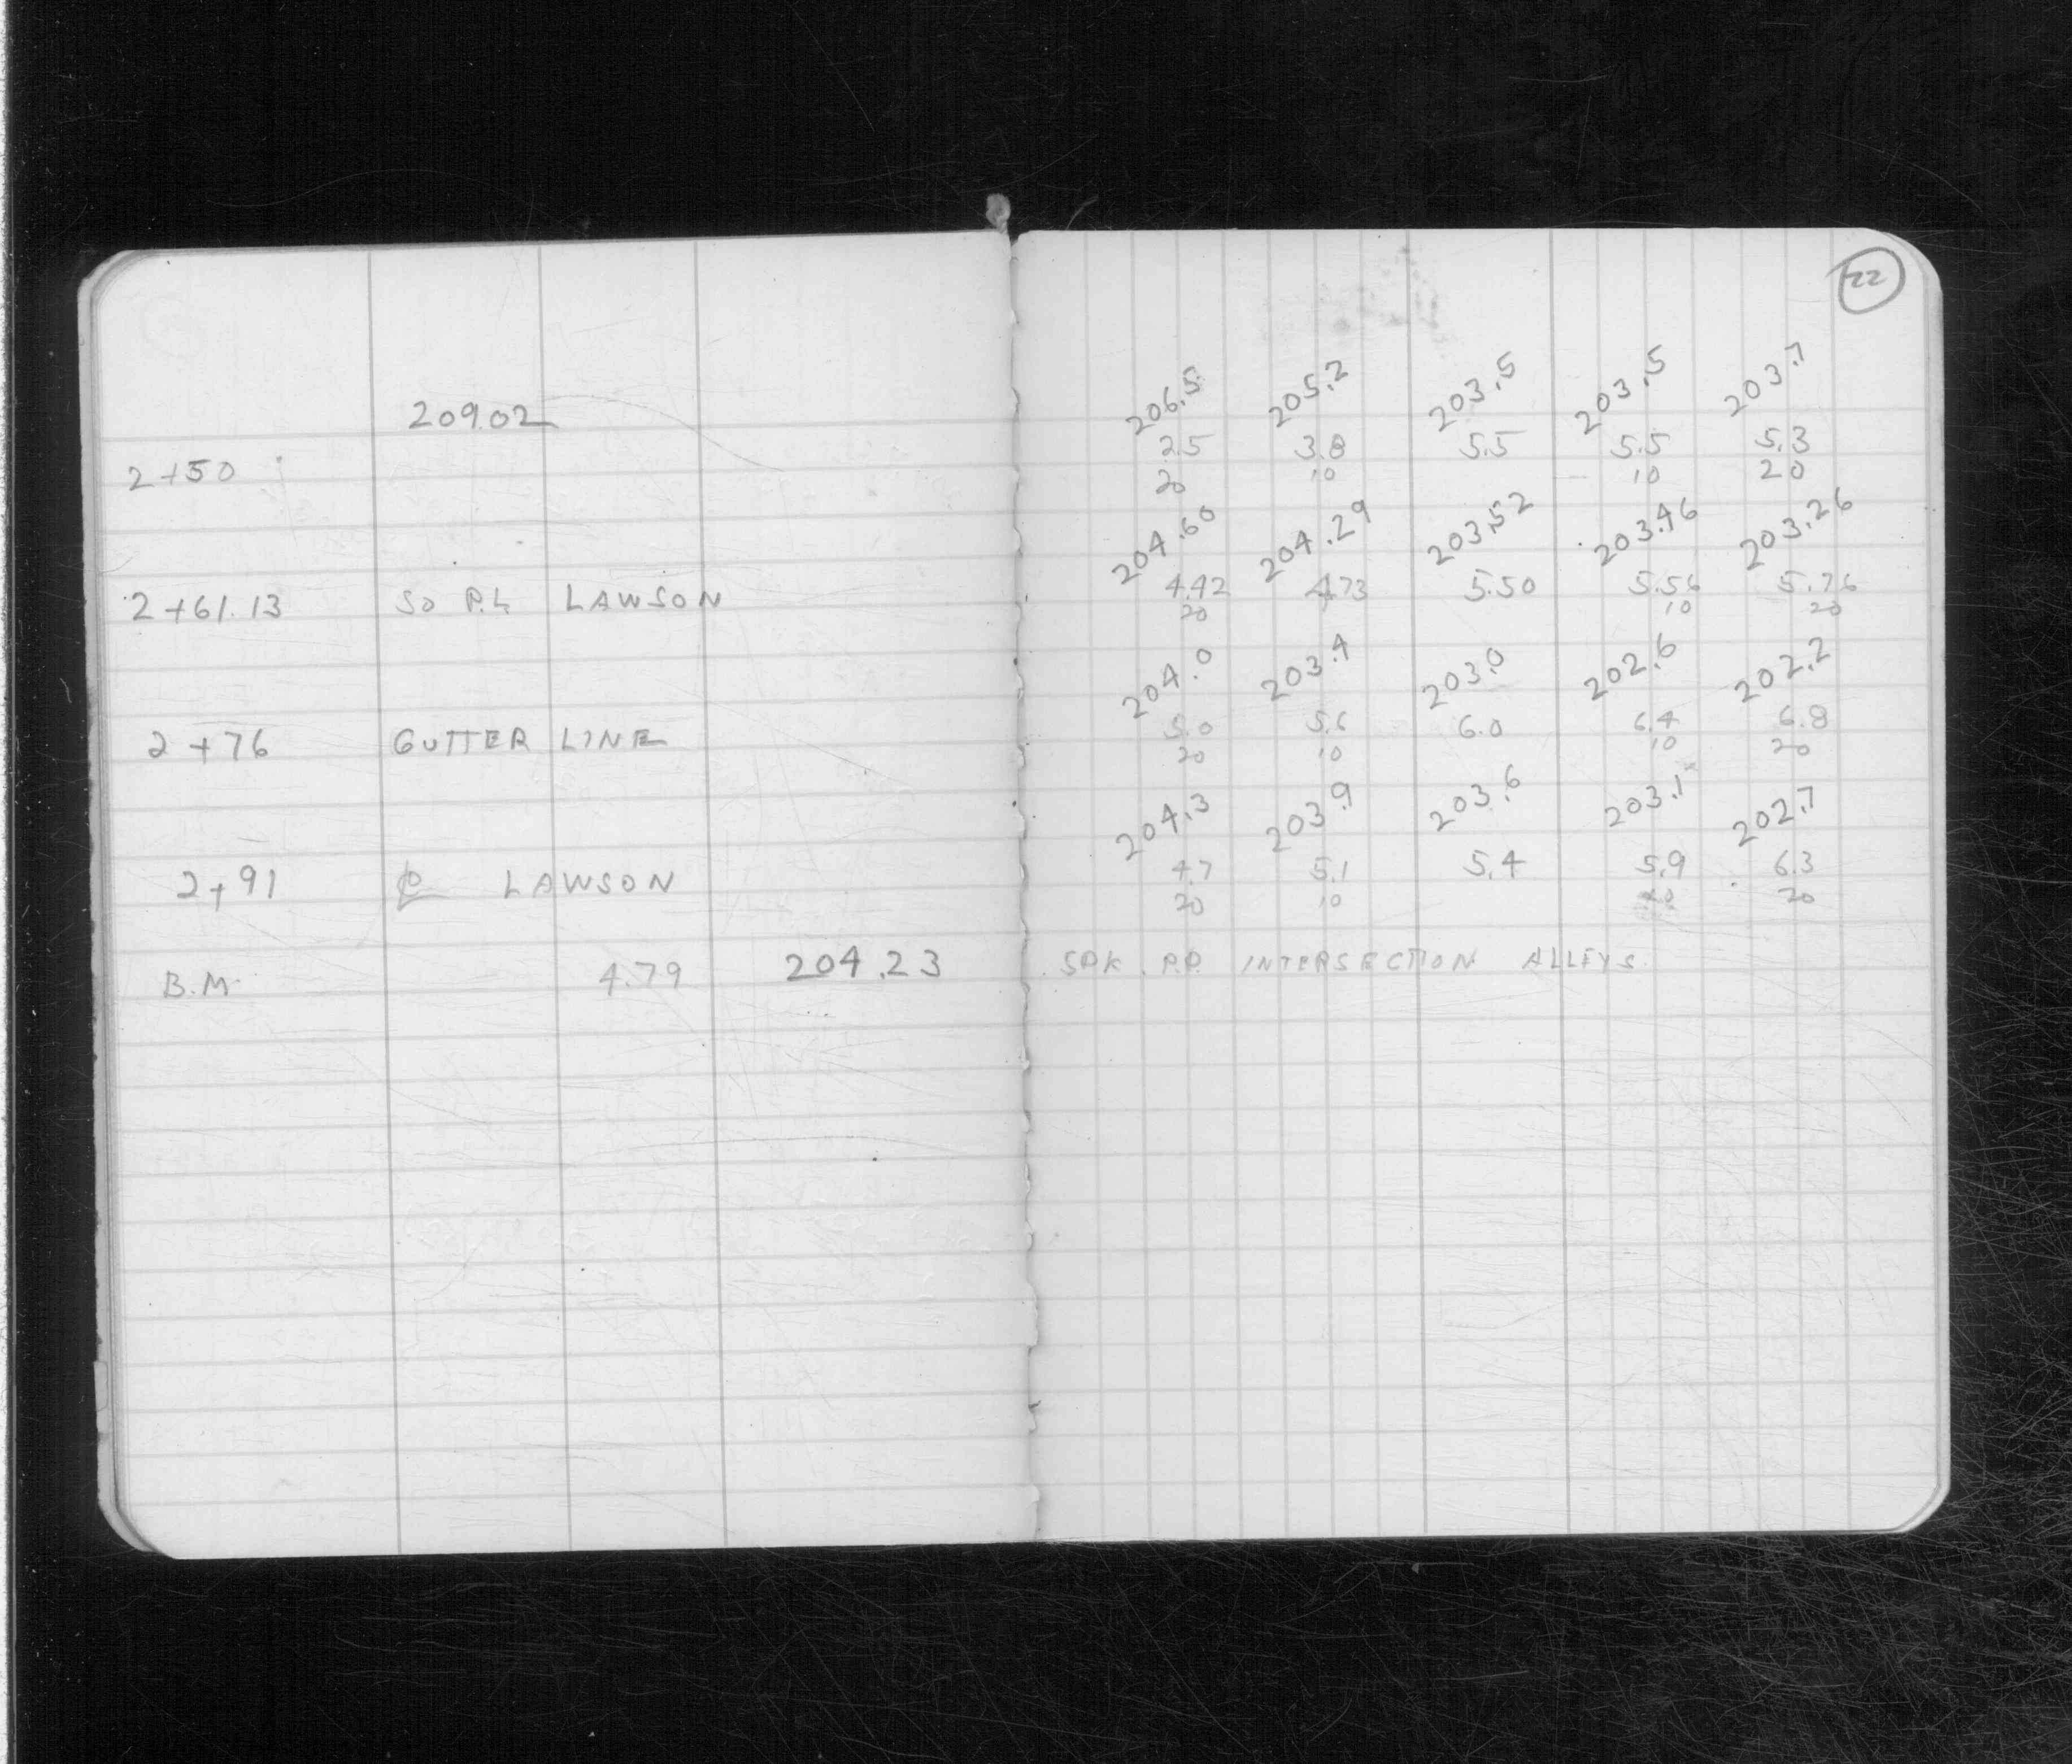 22
206.5 205.2 203.5 203.5 203.7
209.02
2.5 3.8 5.5 5.5 5.3
2+50
20 10 10 20
204.60 204.29 203.52 203.46 203.26
2+61.13 SO P.L LAWSON 4.42 4.73 5.50 5.56 5.76
20 10 20
204.0 203.4 203.0 202.6 202.2
2+76 GUTTER LINE 5.0 5.6 6.0 6.4 6.8
20 10 10 20
204.3 203.9 203.6 203.1 202.7
2+91 ℄ LAWSON 4.7 5.1 5.4 5.9 6.3
20 10 10 20
B.M. 4.79 204.23 SPK P.P. INTERSECTION ALLEYS